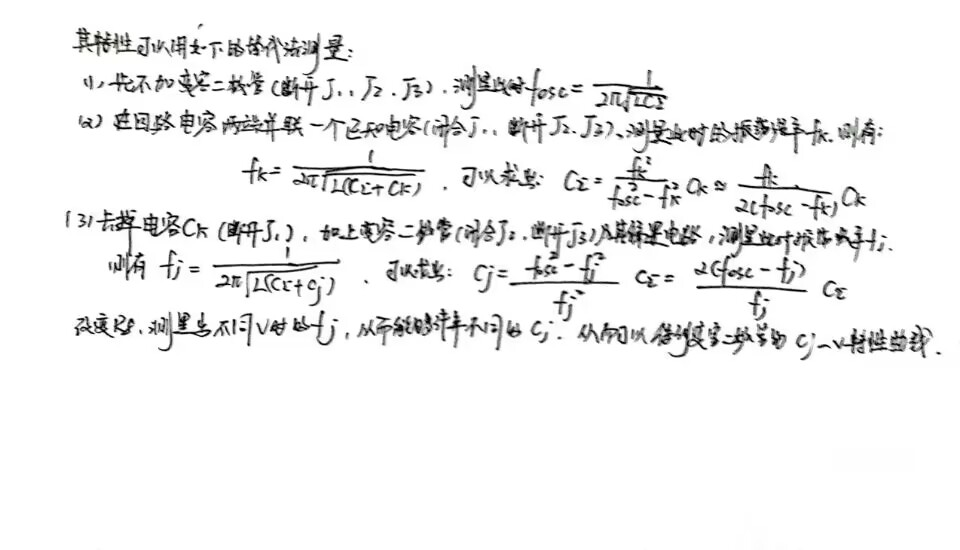 其特性可以用如下的替代法测量:
(1) 先不加变容二极管(断开J₁、J₂、J₃),测量此时fosc=1/(2π√(LCΣ))
(2) 在回路电容两端并联一个已知电容(闭合J₁、断开J₂、J₃),测量此时的振荡频率fk.则有:
fk=1/(2π√(L(CΣ+CK))),可以求出:CΣ=fk²/(fosc²-fk²) CK≈fk/(2(fosc-fk)) CK
(3)卡掉电容CK(断开J₁),加上变容二极管(闭合J₂、断开J₃)及其偏置电路,测量此时振荡频率fj.
则有 fj=1/(2π√(L(CΣ+Cj))),可以求出:Cj=(fosc²-fj²)/fj² CΣ=2(fosc-fj)/fj CΣ
改变RP,测量出不同V时的fj,从而能够计算不同的Cj.从而可以得到变容二极管的Cj~v特性曲线.